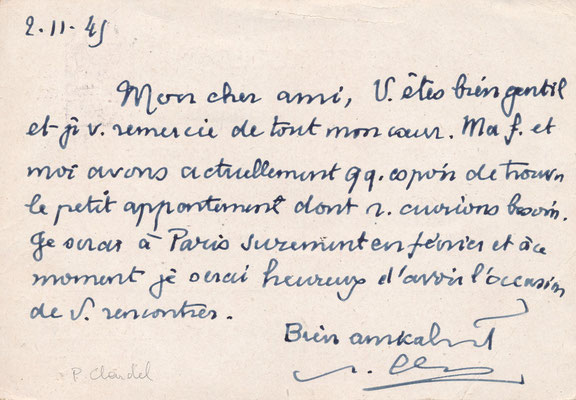 2.11.45
Mon cher ami, V. êtes bien gentil
et je v. remercie de tout mon cœur. Ma f. et
moi avons actuellement qq. espoir de trouver
le petit appartement dont n. aurions besoin.
Je serai à Paris surement en février et à ce
moment je serai heureux d'avoir l'occasion
de V. rencontrer.
Bien amicalement
P. Claudel